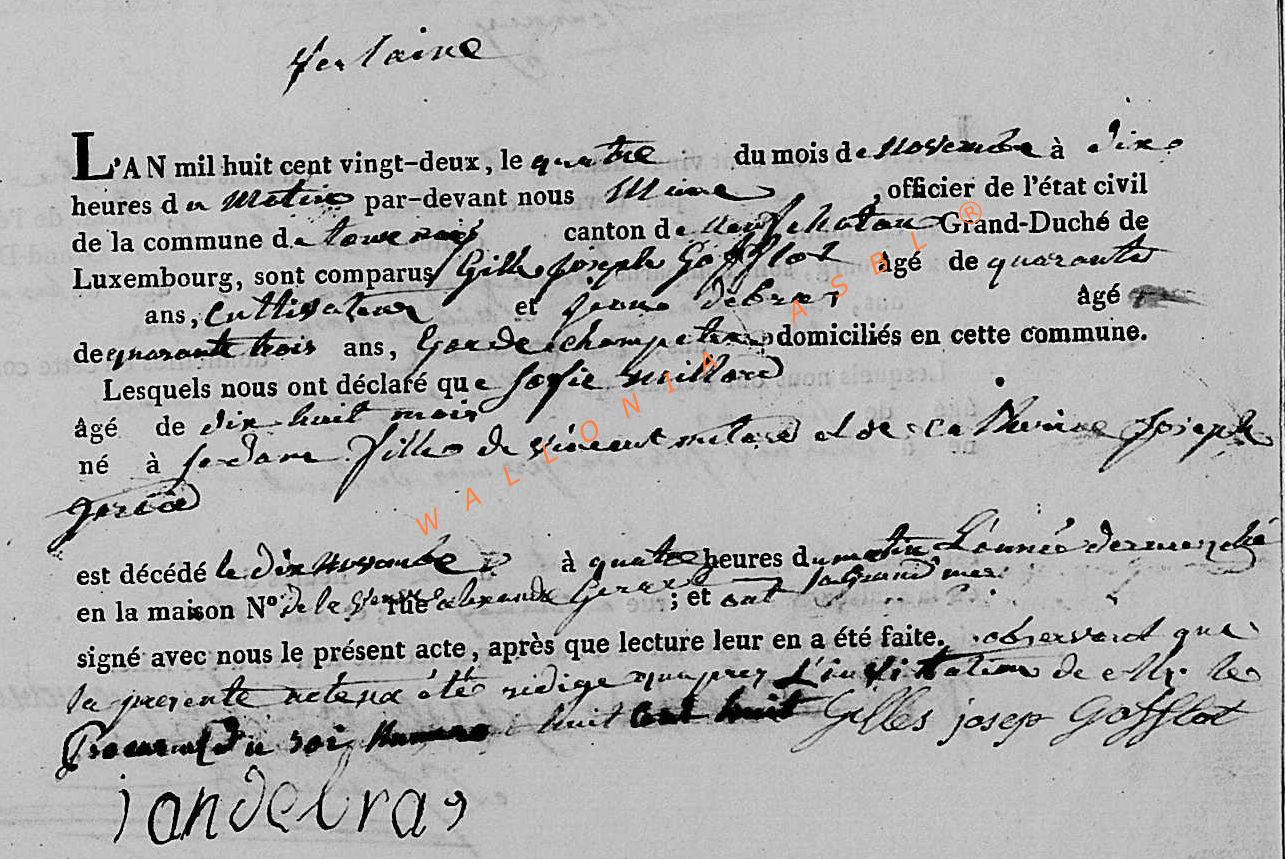 Verlaine
L'AN mil huit cent vingt-deux, le quatre du mois de novembre à dix
heures du Matin par-devant nous officier de l'état civil
de la commune de tournay canton de neufchateau Grand-Duché de
Luxembourg, sont comparus Gille joseph Gofflot âgé de quarante
ans, Cultivateur et jeanne debras âgé
de quarante trois ans, Garde champetre domiciliés en cette commune.
Lesquels nous ont déclaré que sofie millard
âgé de dix huit mois
né à fille de vincent milard et de catherine joseph
est décédé le dix novembre à quatre heures du matin L'année
en la maison N° de la rue alexandre ; et ont sa Grand mere
signé avec nous le présent acte, après que lecture leur en a été faite. observant que
la presente acte na été redige quapres L'invitation de Mr. le
Procureur du roi huit cent huit Gilles josep Gofflot
jandebras
WALLONIA ASBL ®